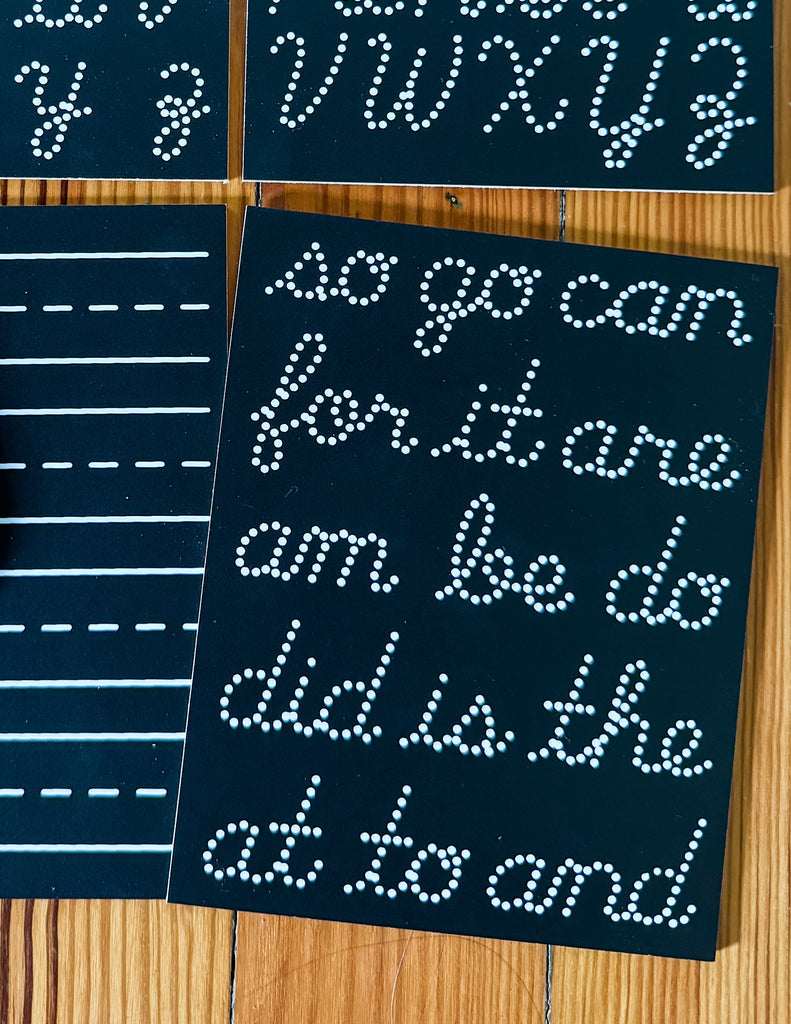 y z
v w x y z
so go can
for it are
am be do
did is the
at to and